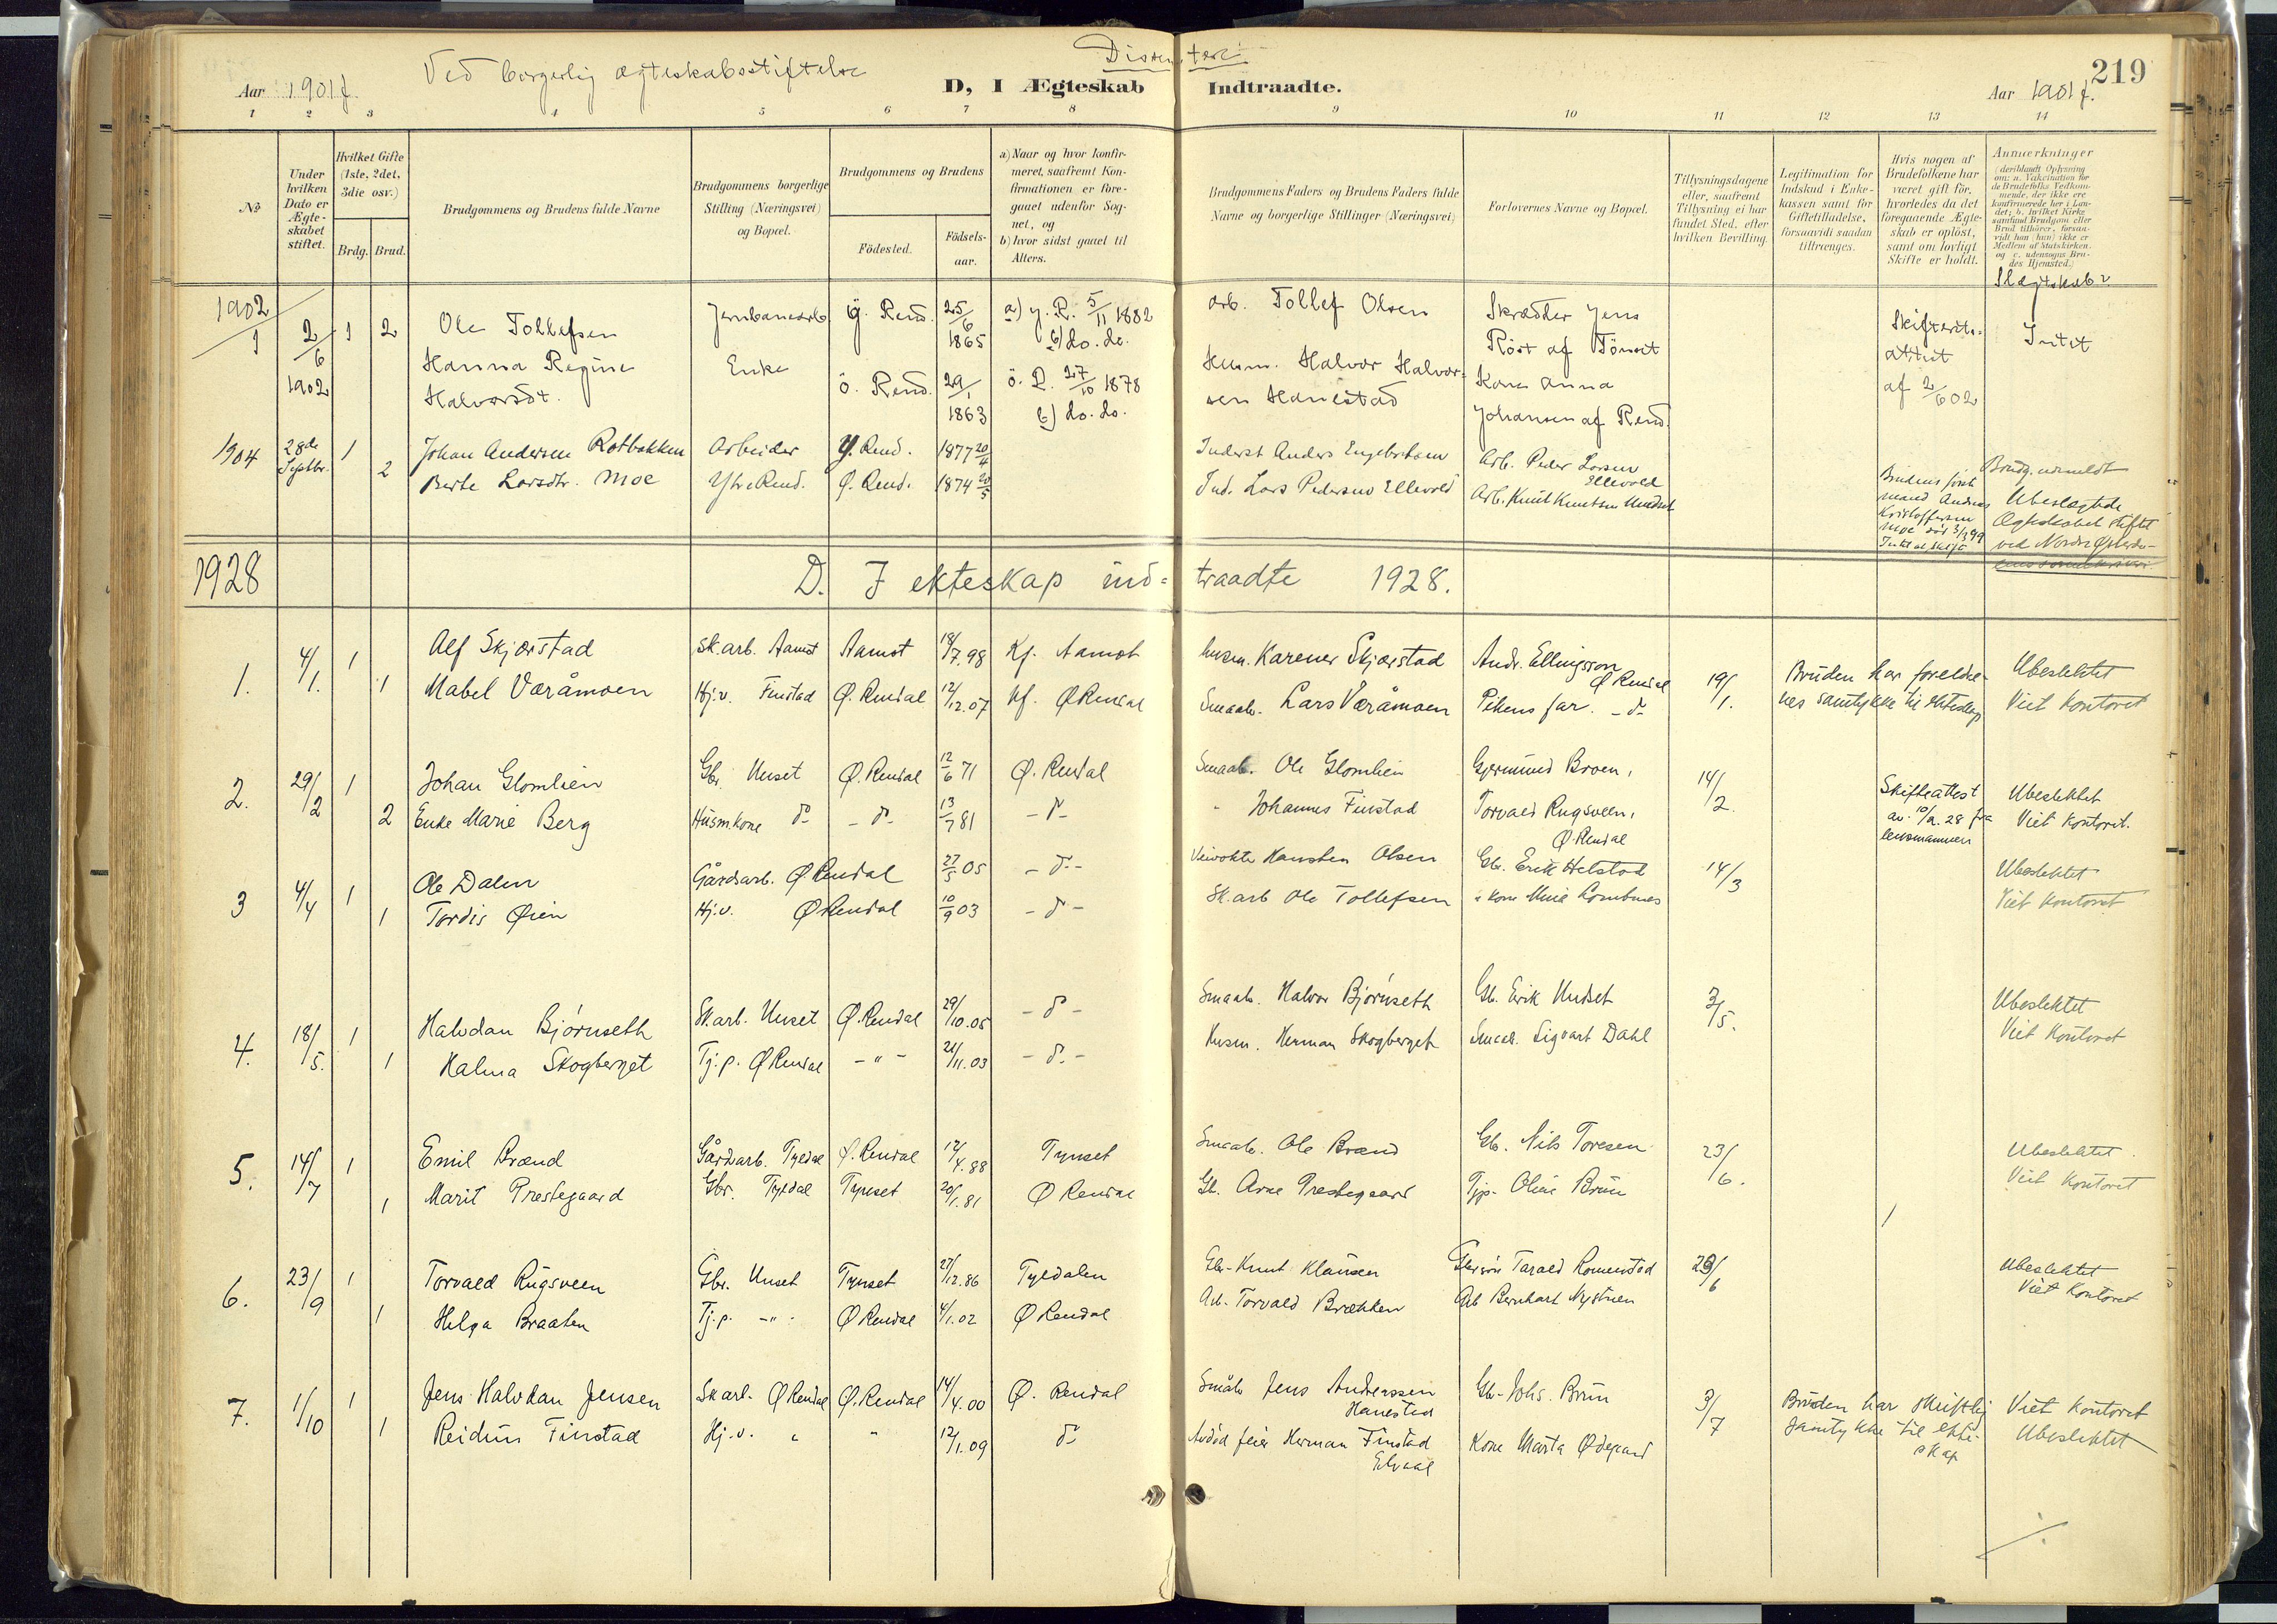 Aar 1901 f.
Ved borgerlig ægteskabsstiftelse
Dissentere
D, I Ægteskab Indtraadte.
219
Aar 1901 f.
1 2 3 4 5 6 7 8 9 10 11 12 13 14
No
Under hvilken Dato er Ægteskabet stiftet.
Hvilket Gifte (1ste, 2det, 3die osv.)
Brdg. Brud.
Brudgommens og Brudens fulde Navne
Brudgommens borgerlige Stilling (Næringsvei) og Bopæl.
Brudgommens og Brudens
Födested. Födsels-aar.
a) Naar og hvor konfirmeret, saafremt Konfirmationen er foregaaet udenfor Sognet, og
b) hvor sidst gaaet til Alters.
Brudgommens Faders og Brudens Faders fulde Navne og borgerlige Stillinger (Næringsvei)
Forlovernes Navne og Bopæl.
Tillysningsdagene eller, saafremt Tillysning ei har fundet Sted, efter hvilken Bevilling
Legitimation for Indskud i Enkekassen samt for Giftetilladelse, forsaavidt saadan tiltrænges.
Hvis nogen af Brudefolkene har været gift før, hvorledes da det foregaaende Ægteskab er oplöst, samt om lovligt Skifte er holdt.
Anmerkninger (deriblandt Oplysning om: a. Vakcination for de Brudefolks Vedkommende, der ikke ere konfirmerede her i Landet; b. hvilket Kirkesamfund Brudgom eller Brud tilhører, forsaavidt han (hun) ikke er Medlem af Statskirken, og c. udensogns Brudes Hjemsted.)
Slægtskab?
1902
1 2/6 1902 1 2 Ole Tollefsen Jernbanearb y. Rend. 25/6 1865 a) y. R. 5/11 1882 b) do. do. arb. Tollef Olsen Skrædder Jens Röst af Tönset Skifteattest af 2/6 02 Intet
Hanna Regine Halvorsdt. Enke ö. Rend. 29/1 1863 ö. R. 27/10 1878 b) do. do. Husm. Halvor Halvorsen Hanestad Kone Anna Johansen af Rend.
1904 28de Septbr. 1 Johan Andersen Rotbakken Arbeider Y. Rend. 1877 20/4 Inderst Anders Engebretsen Arb. Peder Larsen Ellevold
2 Berte Larsdtr. Moe Ytre Rend. Ø. Rend. 1874 20/5 Ind. Lars Pedersen Ellevold Arb. Knut Knutsen Undset
Brudens første mand Andreas Kristoffersen Moe død 3/3 99
Brudg. udmeldt
Ubeslægtede
Ægteskabet stiftet
ved Nordre Østerda-
1928 D. I ekteskap ind=traadte 1928.
1. 4/1. 1 Alf Skjærstad sk.arb. Aamot Aamot 18/7.98 Kf. Aamot husm. Karener Skjærstad Andr. Ellingsson Ø Rendal 19/1. Bruden har foreldre- Ubeslektet
1 Mabel Væråmoen Hj.v. Finstad Ø. Rendal 12/12.07 Kf. Ø Rendal Smaab. Lars Væråmoen Pikens far. - do nes samtykke til ekteskap Viet Kontoret
2. 29/2 1 Johan Glomlien Gbr. Unset Ø. Rendal 12/6 71 Ø. Rendal Smaab. Ole Glomlien Gjermund Broen, 14/2. Skifteattest Ubeslektet
2 Enke Marie Berg Husm.kone do - do - 13/7 81 - do - Johannes Finstad Torvald Rugsveen, Ø. Rendal av. 10/2. 28 fra lensmannen Viet Kontoret.
3 4/4 1 Ole Dalen Gårdsarb. Ø. Rendal 27/5 05 - do - Veivokter Karsten Olsen Gb. Erik Helstad 14/3 Ubeslektet
1 Tordis Øien Hj.v. Ø Rendal 10/9 03 - do - Sk.arb Ole Tollefsen Viet Kontoret
4. 18/5. 1 Halvdan Bjørnseth Sk.arb. Unset Ø. Rendal 29/10.05 - do - Smaab. Halvor Bjørnseth Gb. Erik Undset 3/5. Ubeslektet
1 Halma Skogberget Tj.p. Ø Rendal - " - 21/11.03 - do - Husm. Herman Skogberget Smaab. Sigvart Dahl Viet Kontoret
5. 14/7 1 Emil Brænd Gårdsarb. Tyldal Ø. Rendal 12/4.88 Tynset Smaab. Ole Brænd Gb. Nils Toresen 23/6. Ubeslektet.
1 Marit Prestegaard Gbr. Tyldal Tynset 20/1.81 Ø Rendal Gb. Arne Prestegaard Tjp. Oline Brun Viet Kontoret
6. 23/9 1 Torvald Rugsveen Gbr. Unset Tynset 27/12.86 Tyldalen Gbr. Knut Klausen Tarald Romenstad 23/6 Ubeslektet
1 Helga Braaten Tj.p. - " - Ø Rendal 4/1.02 Ø Rendal Arb. Torvald Brækken Arb Bernhart Nystuen Viet Kontoret
7. 1/10 1 Jens Halvdan Jensen Sk arb. Ø Rendal Ø. Rendal 14/4.00 Ø. Rendal Småb Jens Andreassen Hanestad Gb. Johs. Brun 3/7 Bruden har skriftlig Viet Kontoret
1 Reidun Finstad Hj.v. " " 12/1.09 do Avdød feier Herman Finstad Elvaal Kone Marta Ødegaard samtykke til ekteskap Ubeslektet